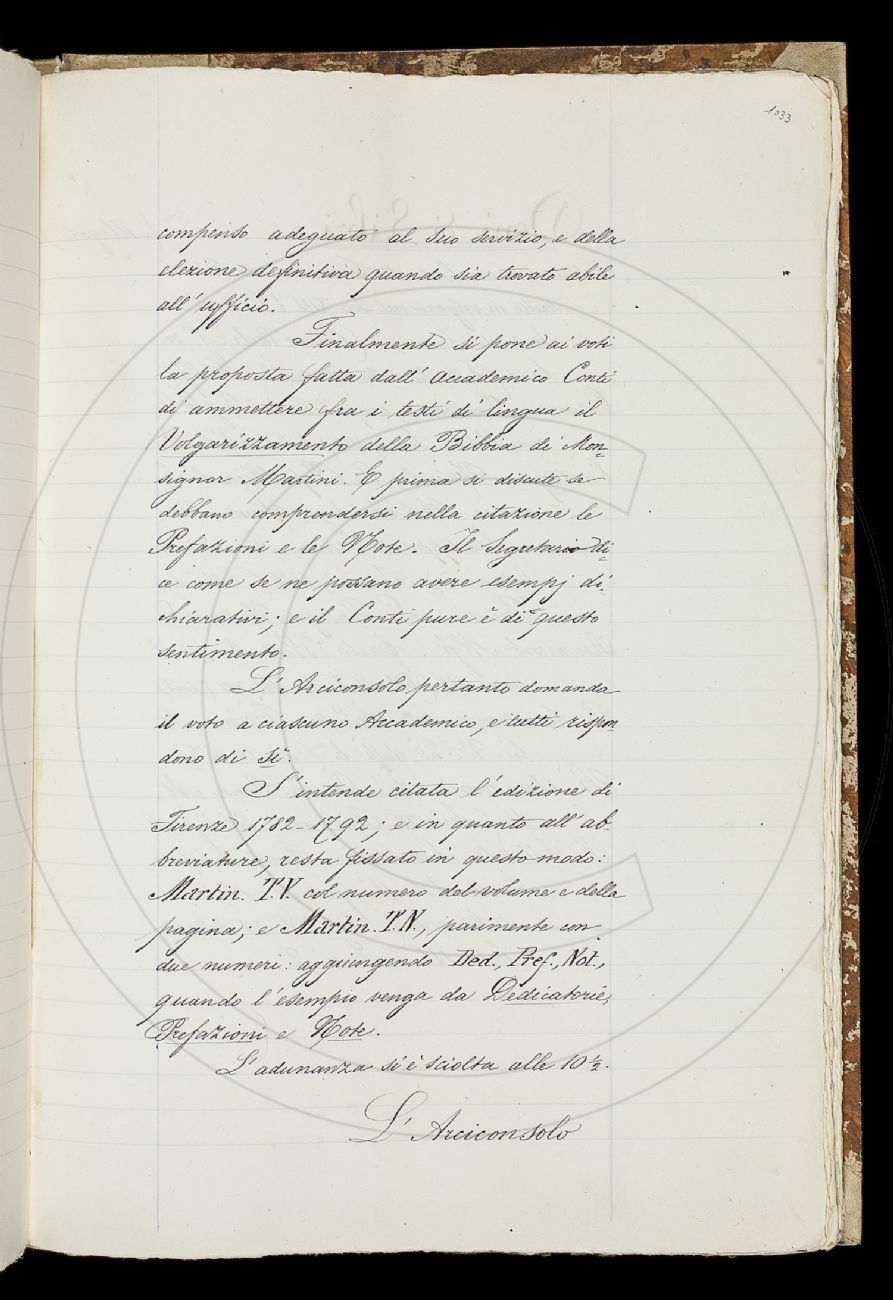 1033
compenso adeguato al suo servizio, e della
elezione definitiva quando sia trovato abile
all' ufficio.
Finalmente si pone ai voti
la proposta fatta dall' Accademico Conti
di ammettere fra i testi di lingua il
Volgarizzamento della Bibbia di Mon=
signor Martini. E prima si discute se
debbano comprendersi nella citazione le
Prefazioni e le Note. Il Segretario di=
ce come se ne possano avere esempj di=
chiarativi; e il Conti pure è di questo
sentimento.
L' Arciconsolo pertanto domanda
il voto a ciascuno Accademico, e tutti rispon=
dono di sì.
S' intende citata l' edizione di
Firenze 1782-1792; e in quanto all' ab=
breviature, resta fissato in questo modo:
Martin. T.V. col numero del volume e della
pagina; e Martin. T.N., parimente con
due numeri: aggiungendo Ded., Pref., Not.,
quando l' esempio venga da Dedicatorie,
Prefazioni e Note.
L' adunanza si è sciolta alle 10 ½.
L' Arciconsolo